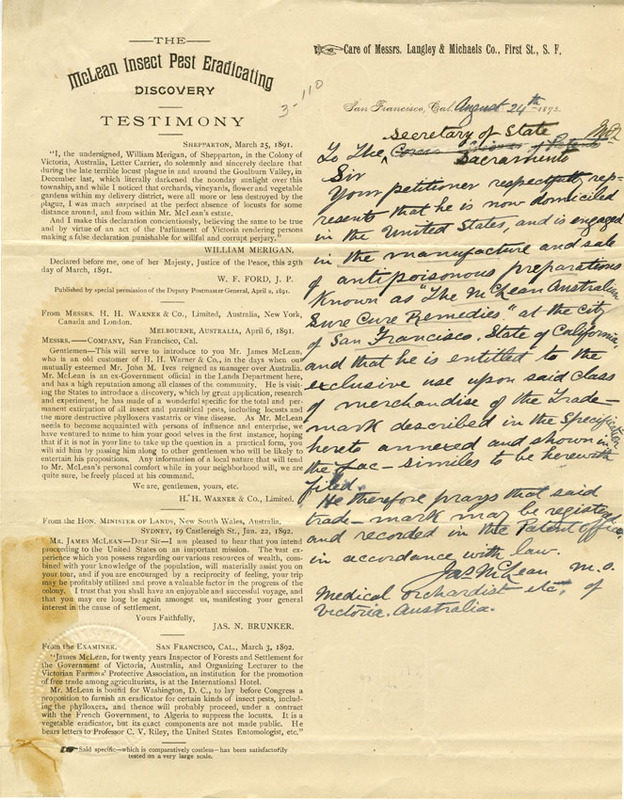 THE
McLean Insect Pest Eradicating
DISCOVERY
TESTIMONY
SHEPPARTON, March 25, 1891.
"I, the undersigned, William Merigan, of Shepparton, in the Colony of
Victoria, Australia, Letter Carrier, do solemnly and sincerely declare that
during the late terrible locust plague in and around the Goulburn Valley, in
December last, which literally darkened the noonday sunlight over this
township, and while I noticed that orchards, vineyards, flower and vegetable
gardens within my delivery district, were all more or less destroyed by the
plague, I was much surprised at the perfect absence of locusts for some
distance around, and from within Mr. McLean's estate.
And I make this declaration concientiously, believing the same to be true
and by virtue of an act of the Parliament of Victoria rendering persons
making a false declaration punishable for willful and corrupt perjury."
WILLIAM MERIGAN.
Declared before me, one of her Majesty, Justice of the Peace, this 25th
day of March, 1891.
W. F. FORD, J. P.
Published by special permission of the Deputy Postmaster General, April 2, 1891.
From MESSRS. H. H. WARNER & CO., Limited, Australia, New York,
Canada and London.
MELBOURNE, AUSTRALIA, April 6, 1891.
MESSRS. —— COMPANY, San Francisco, Cal.
Gentlemen—This will serve to introduce to you Mr. James McLean,
who is an old customer of H. H. Warner & Co., in the days when our
mutually esteemed Mr. John M. Ives reigned as manager over Australia.
Mr. McLean is an ex-Government official in the Lands Department here,
and has a high reputation among all classes of the community. He is visit-
ing the States to introduce a discovery, which by great application, research
and experiment, he has made of a wonderful specific for the total and per-
manent extirpation of all insect and parasitical pests, including locusts and
the more destructive phylloxera vastatrix or vine disease. As Mr. McLean
needs to become acquainted with persons of influence and enterprise, we
have ventured to name to him your good selves in the first instance, hoping
that if it is not in your line to take up the question in a practical form, you
will aid him by passing him along to other gentlemen who will be likely to
entertain his propositions. Any information of a local nature that will tend
to Mr. McLean's personal comfort while in your neighborhood will, we are
quite sure, be freely placed at his command.
We are, gentlemen, yours, etc.
H. H. WARNER & CO., Limited.
From the HON. MINISTER OF LANDS, New South Wales, Australia.
SYDNEY, 19 Castlereigh St., Jan. 22, 1892.
MR. JAMES MCLEAN—Dear Sir—I am pleased to hear that you intend
proceeding to the United States on an important mission. The vast exper-
ience which you possess regarding our various resources of wealth, com-
bined with your knowledge of the continent, will materially assist you on
your tour, and if you are encouraged by a reciprocity of feeling, your trip
may be profitably utilized and prove a valuable factor in the progress of the
colony. I trust that you shall have an enjoyable and successful voyage, and
that you may ere long be again amongst us, manifesting your general
interest in the cause of settlement.
Yours Faithfully,
JAS. N. BRUNKER.
From the EXAMINER. SAN FRANCISCO, CAL., March 3, 1892.
"James McLean, for twenty years Inspector of Forests and Settlement for
the Government of Victoria, Australia, and Organizing Lecturer to the
Victorian Farmers' Protective Association, an institution for the promotion
of free trade among agriculturists, is at the International Hotel.
Mr. McLean is bound for Washington, D. C., to lay before Congress a
proposition to furnish an eradicator for certain kinds of insect pests, includ-
ing the phylloxera, and thence will probably proceed, under a contract
with the French Government, to Algeria to suppress the locusts. It is a
vegetable eradicator, but its exact components are not made public. He
bears letters to Professor C. V. Riley, the United States Entomologist, etc."
Said specific—which is comparatively costless—has been satisfactorily
tested on a very large scale.
3-110
Care of Messrs. Langley & Michaels Co., First St., S. F.
San Francisco, Cal. August 24th 1892.
Secretary of State
To The
Sacramento
Sir
Your petitioner respectfully rep-
resents that he is now domiciled
in the United States, and is engaged
in the manufacture and sale
of antipoisonous preparations
Known as "The McLean Australian
Sure Cure Remedies," at the City
of San Francisco, State of California,
and that he is entitled to the
exclusive use upon said class
of merchandise of the Trade-
mark described in the Specification
hereto annexed and shown in
the fac-similes to be herewith
filed.
He therefore prays that said
trade-mark may be registered
and recorded in the Patent Office,
in accordance with law.
Jas McLean M.O.
Medical orchardist etc, of
Victoria. Australia.